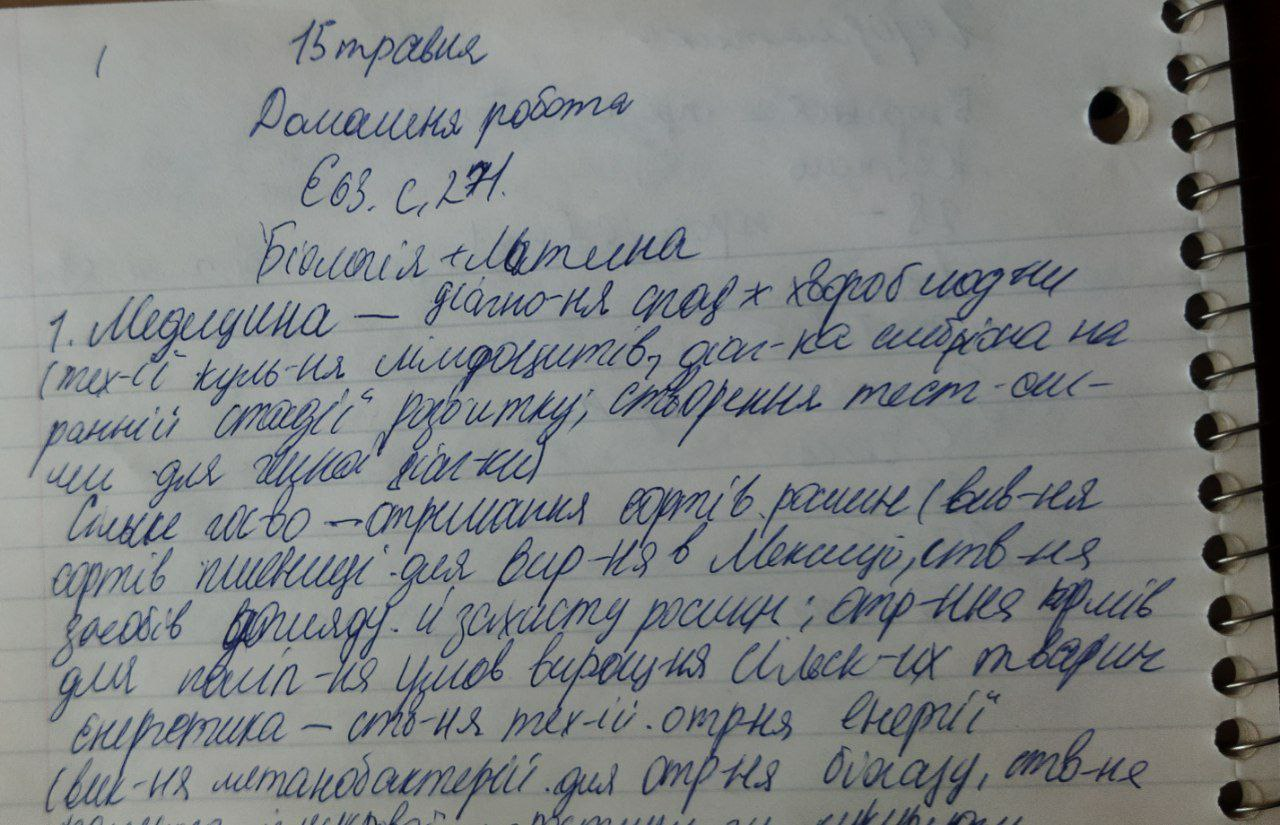 15 травня
Домашня робота
§ 63. с. 271.
Біологія + Людина
1. Медицина — діагно-ня спад-х хвороб людини
(тех-ії куль-ня лімфоцитів, діаг-ка ембріона на
ранній стадії розвитку; створення тест-
для діаг-ки)
Сільське гос-во — отримання сортів рослин (вив-ня
сортів пшениці для вир-ня в Мексиці, ств-ня
засобів догляду й захисту рослин; отр-ння кормів
для поліп-ня умов вирощ-ня сільск-их тварин
енергетика — ств-ня тех-ій отр-ня енергії
(вик-ня метанобактерій для отр-ня біогазу, ств-не